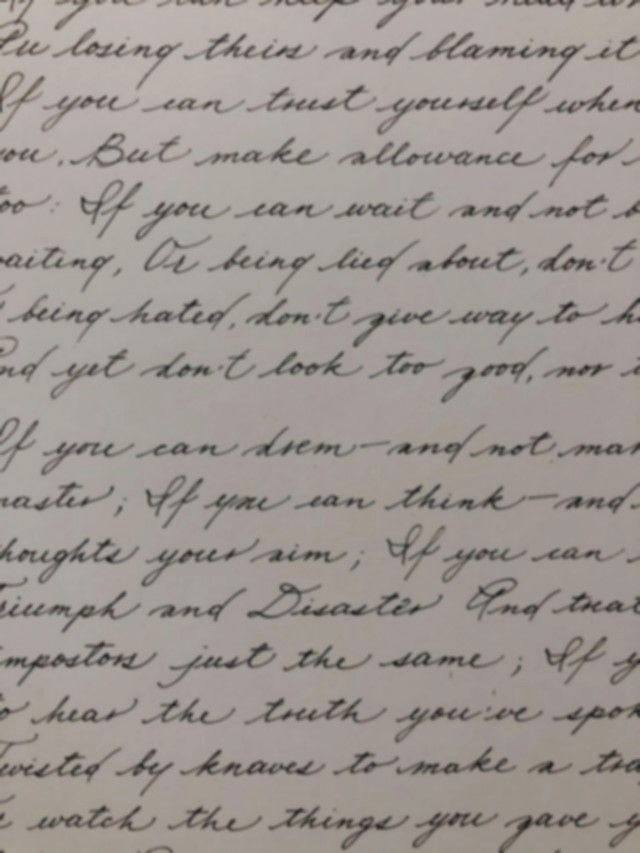 you can keep your head
losing theirs and blaming it
If you can trust yourself when
you. But make allowance for
too: If you can wait and not
waiting, Or being lied about, don't
being hated, don't give way to
And yet don't look too good, nor
If you can drem—and not
master; If yue can think—and
thoughts your aim; If you can
Triumph and Disaster And treat
impostors just the same; If
to hear the truth you've
Twisted by knaves to make a
watch the things you gave